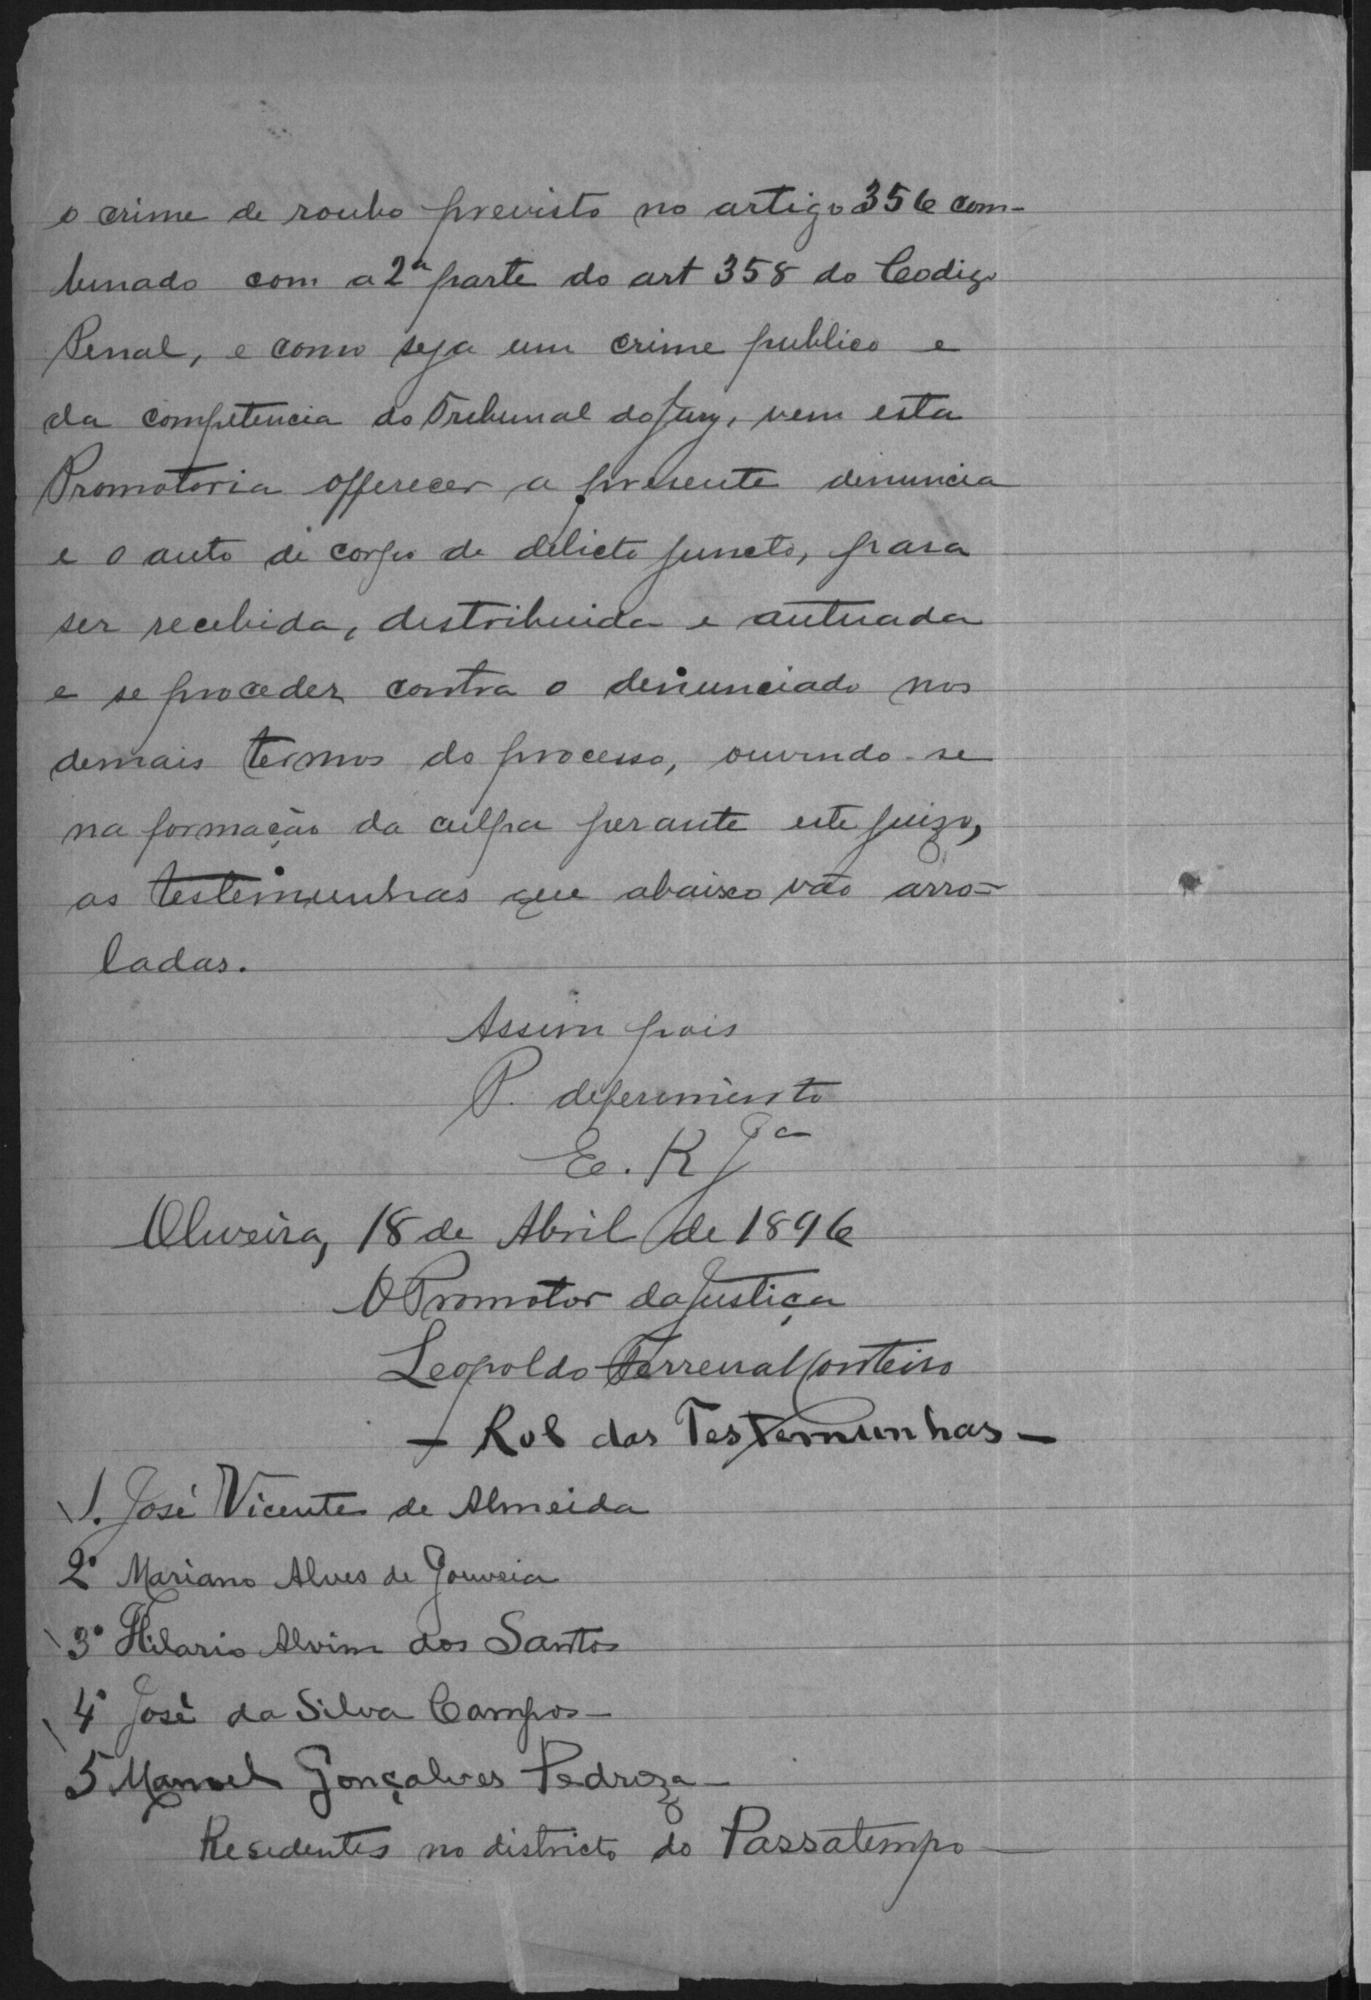 o crime de roubo previsto no artigo 356 com-
binado com a 2ª parte do art 358 do Codigo
Penal, e como seja um crime publico e
da competencia do Tribunal do Jury, vem esta
Promotoria offerecer a presente denuncia
e o auto de corpo de delicto juncto, para
ser recebida, distribuida e autuada
e se proceder contra o denunciado nos
demais termos do processo, ouvindo-se
na formação da culpa perante este juizo,
as testemunhas que abaixo vão arro-
ladas.
Assim pois
P. deferimento
E. R Jª
Oliveira, 18 de Abril de 1896
O Promotor da Justiça
Leopoldo Ferreira Monteiro
- Rol das Testemunhas -
1. José Vicente de Almeida
2º Mariano Alves de Gouveia
3º Hilario Alvim dos Santos
4º José da Silva Campos -
5 Manoel Gonçalves Pedroza -
Residentes no districto do Passatempo -